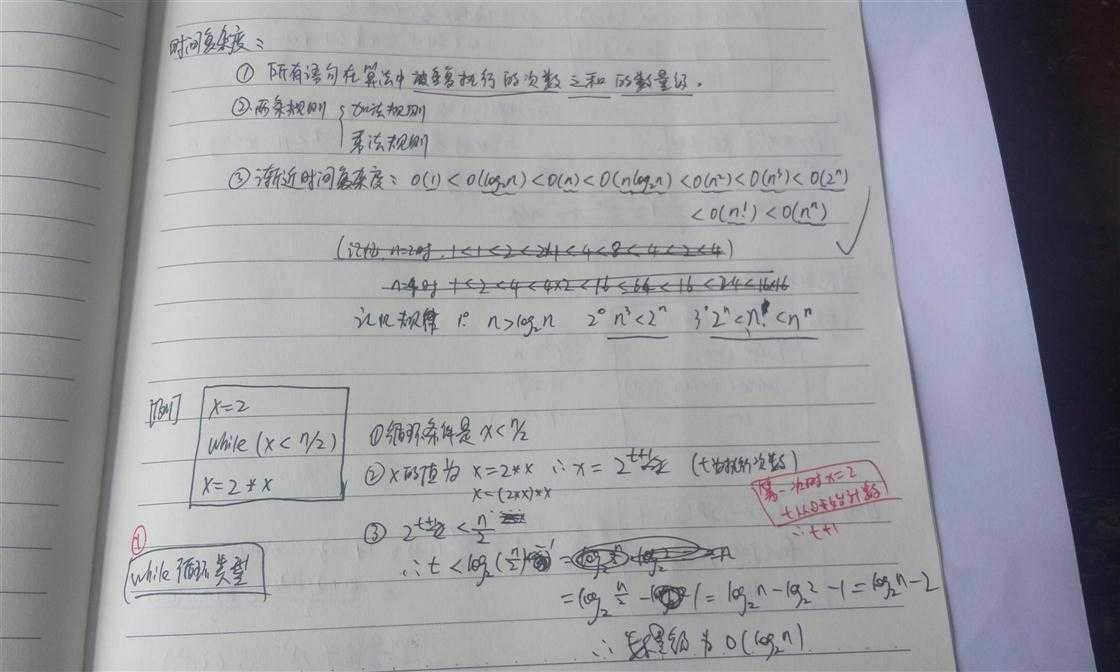 时间复杂度：
① 所有语句在算法中被重复执行的次数之和的数量级.
②两条规则 { 加法规则
乘法规则
③渐近时间复杂度：O(1) < O(log₂n) < O(n) < O(nlog₂n) < O(n²) < O(n³) < O(2ⁿ)
< O(n!) < O(nⁿ)
n=2时. 1<1<2<2×1<4<8<4<2<4)
n=4时 1<2<4<4×2<16<64<16<24<16×16
记忆规律 1° n>log₂n 2° n³<2ⁿ 3° 2ⁿ<n!<nⁿ
[例]
x=2
while (x<n/2)
x=2*x
①循环条件是 x<n/2
②x的值为 x=2*x ∴x=2^(t+1) (t为执行次数)
x=(2*x)*x
第一次时x=2
t从0开始计数
∴t+1
③ 2^(t+1) < n/2
∴t<log₂(n/2)-1
=log₂ n/2 - 1 = log₂n-log₂2-1=log₂n-2
∴数量级为O(log₂n)
①
while循环类型